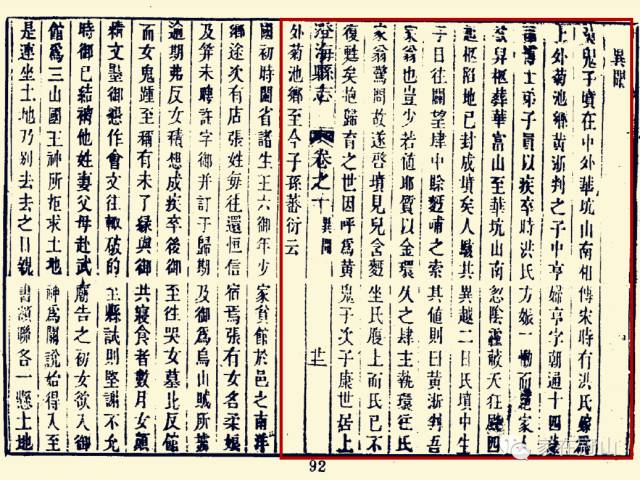 異聞
鬼子墳在中外華坑山南相傳宋時有洪氏嫁
上外菊池鄉黃浙判之子中亨婦亨字朝遜十四
博士弟子員以疾卒時洪氏方娠一慟而絕家人
舁柩葬華富山至華坑山南忽陰霾蔽天狂飈四
起柩陷地已封成墳矣人駭其異越二日氏墳中生
子日往關望肆中賒麪哺之索其値則曰黃浙判吾
家翁也豈少若値耶質以金環久之肆主執環往氏
家翁驚問故遂啓墳見兒含麪坐氏腹上而氏已不
復甦矣抱歸育之世因呼爲黃鬼子次子康世居上
澄海縣志 卷之十 異聞
外菊池鄉至今子孫蕃衍云
國初時閩省諸生王六御年少家貧館於邑之南洋
鄉途次有店張姓每往還恒信宿焉張有女名柔娘
及笄未聘許字御并訂于歸期及御爲烏山賊所
逾期弗反女積想成疾卒後御至往哭女墓比反館
而女鬼踵至稱有未了緣與御共寢食者數月女頗
精文墨御作會文往輒破的至縣試則堅謝不允
時御已結褵他姓妻父母赴武廟告之初女欲入御
館爲三山國王神所拒求土地神爲關說始得入至
是連坐土地乃別去去之日親書額聯各一懸土地
92